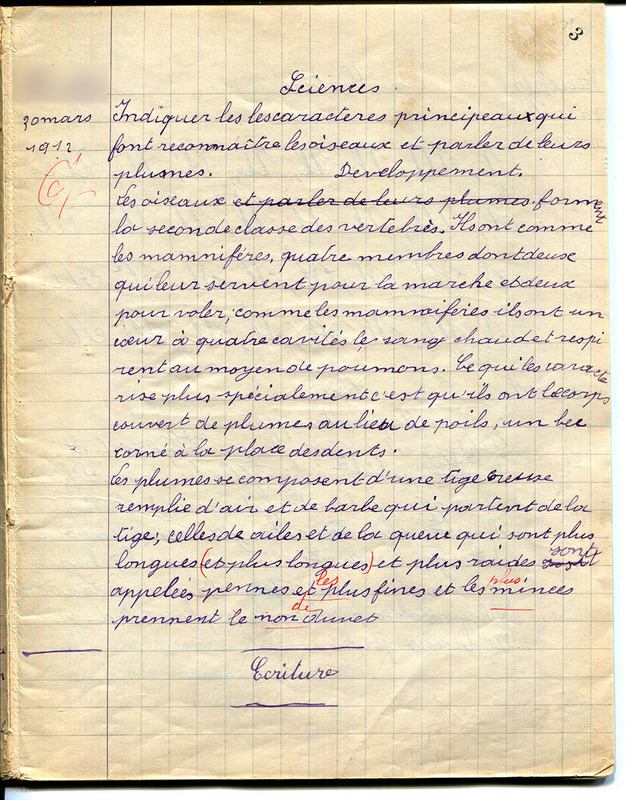 3
Sciences
30 mars
1912
Indiquer les les caracteres principeaux qui
font reconnaître les oiseaux et parler de leurs
plumes. Developpement.
Les oiseaux et parler de leurs plumes forment
la seconde classe des vertebrés. Ils ont comme
les mammiféres, quatre membres dont deux
qui leur servent pour la marche et deux
pour voler; comme les mammiféres ils ont un
cœur à quatre cavités le sang chaud et respi
rent au moyen de poumons. Ce qui les caracte
rise plus spécialement c'est qu'ils ont le corps
couvert de plumes au lieu de poils, un bec
corné à la place des dents.
Les plumes se composent d'une tige creuse
remplie d'air et de barbe qui partent de la
tige; celles de ailes et de la queue qui sont plus
longues (et plus longues) et plus raides sont
appelées pennes et les plus fines et les plus minces
prennent le non de duvet
Ecriture